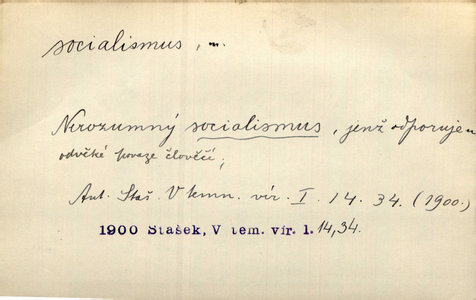 socialismus, m.
Nerozumný socialismus, jenž odporuje
odvěké povaze člověčí,
Ant. Staš. V temn. vír. I. 14. 34. (1900.)
1900 Stašek, V tem. vír. 1. 14,34.